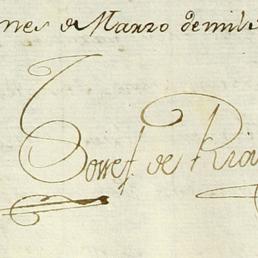 nes de Marzo de mil
Torres de Rio